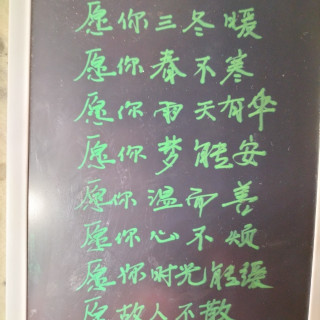 愿你三冬暖
愿你春不寒
愿你雨天有伞
愿你梦能安
愿你温而善
愿你心不烦
愿你时光能缓
愿故人不散